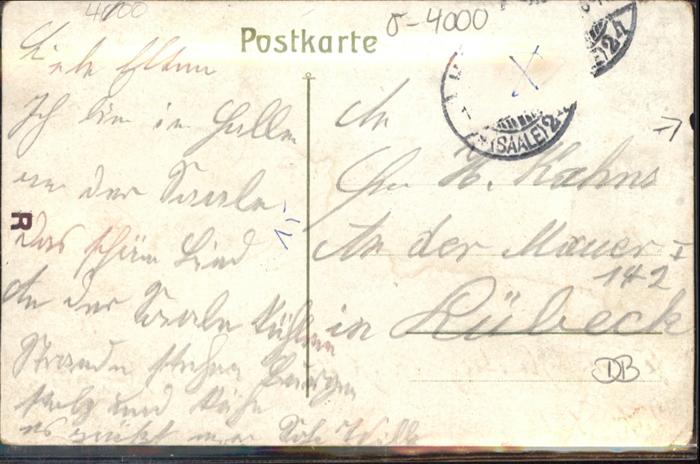 4000
σ-4000
Postkarte
(SAALE)2
Liebe Eltern
Ich bin in Halle
an der Saale.
R
Das schöne Lied
An der Saale kühlen
Strande stehen Burgen
stolz und kühn
es grüßt euer Sohn Willi
1,-
An
H. Kahns
An der Mauer
142
in Lübeck
DB